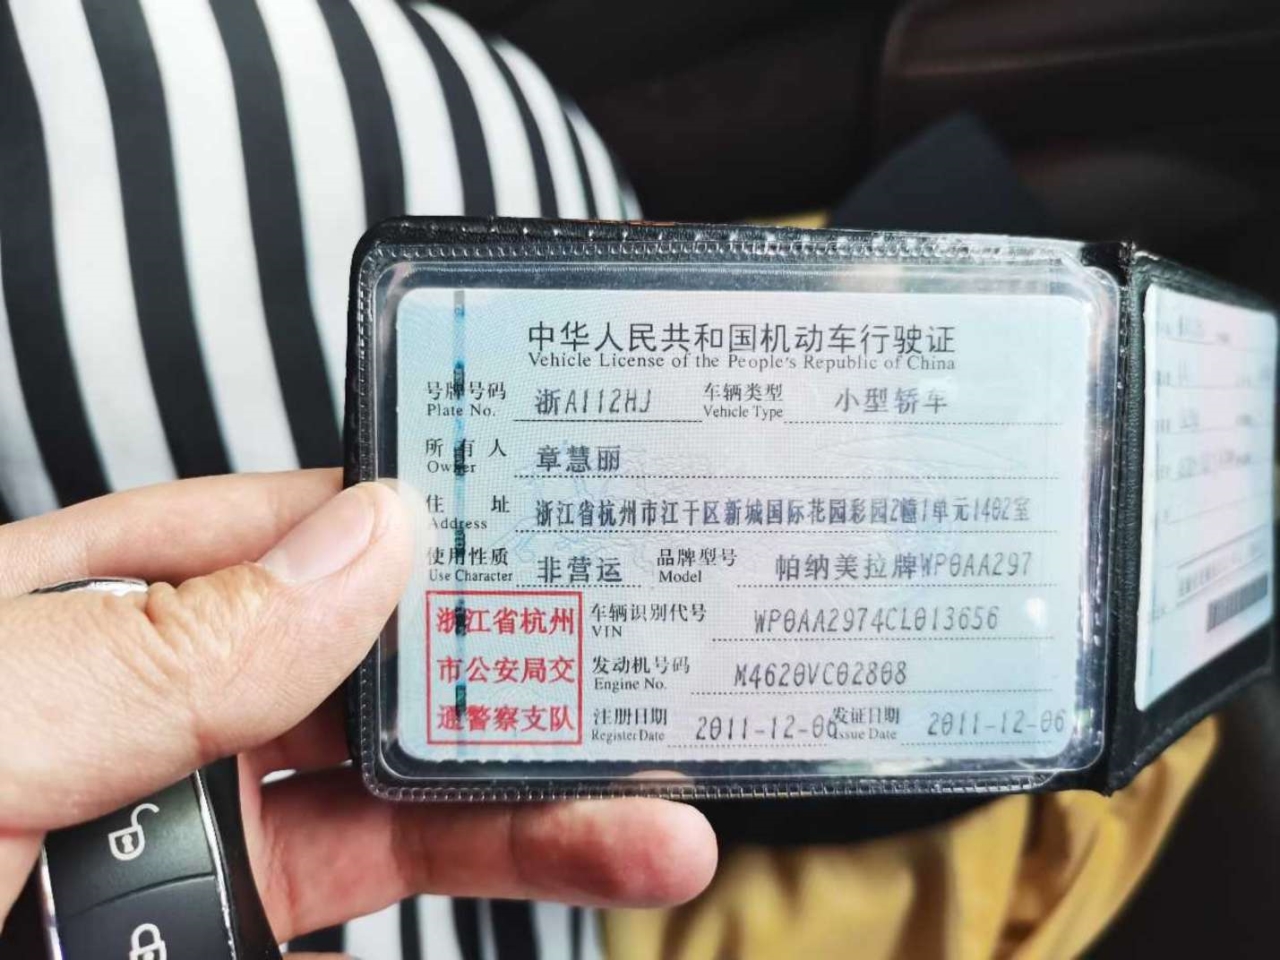 中华人民共和国机动车行驶证
Vehicle License of the People's Republic of China
号牌号码 浙A112HJ 车辆类型 小型轿车
Plate No. Vehicle Type
所有人 章慧丽
Owner
住址 浙江省杭州市江干区新城国际花园彩园2幢1单元1402室
Address
使用性质 非营运 品牌型号 帕纳美拉牌WP0AA297
Use Character Model
浙江省杭州
市公安局交
通警察支队
车辆识别代号 WP0AA2974CL013656
VIN
发动机号码 M4620VC02808
Engine No.
注册日期 2011-12-06 发证日期 2011-12-06
Register Date Issue Date